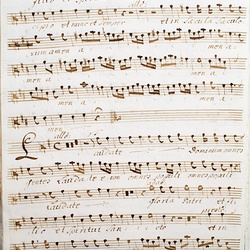 et in Sæcula Sæcula
rum amen a men a
men a men a
men a men a
men
Laudate Dominum omnes
gentes Laudate eum omnes populi omnes populi
Laudate gloria Patri et fi
lio et Spiritui San cto et in